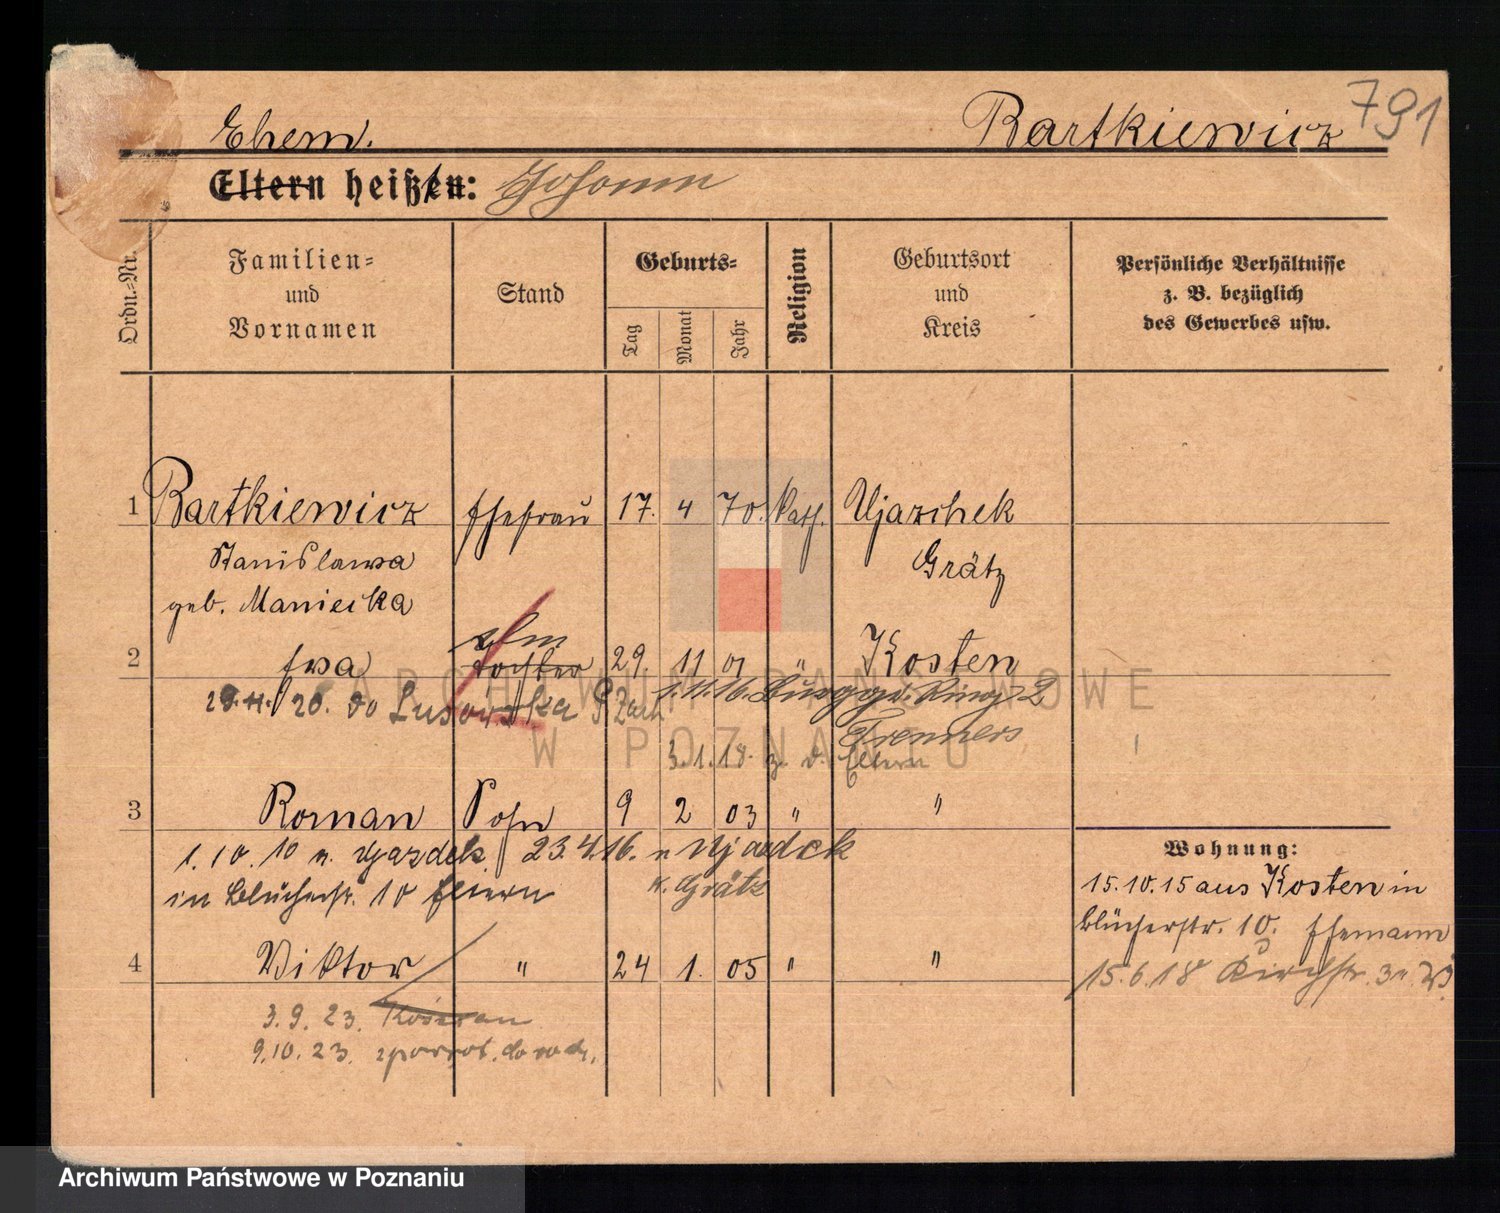 791
Ehem. Bartkiewicz
Eltern heißen: Johann
Ordn.-Nr.
Familien-
und
Vornamen
Stand
Geburts-
Tag
Monat
Jahr
Religion
Geburtsort
und
Kreis
Persönliche Verhältnisse
z. B. bezüglich
des Gewerbes usw.
1 Bartkiewicz Ehefrau 17. 4 70. kath. Ujazchek
Stanislawa Grätz
geb. Maniecka
2 Ewa Tochter 29. 11 01 " Kosten
1.11.16. Ring 2
20. do
3.1.18. z. d. Eltern
3 Roman Sohn 9 2 03 " "
1.10.10 n. Ujazdek 23.4.16. n Ujazdek
in Blücherstr. 10 K. Grätz
4 Viktor " 24 1. 05 " "
3.9.23.
9.10.23.
Wohnung:
15.10.15 aus Kosten in
Blücherstr. 10. Ehemann
15.6.18 Kirchstr.
ARCHIWUM PAŃSTWOWE
W POZNANIU
Archiwum Państwowe w Poznaniu